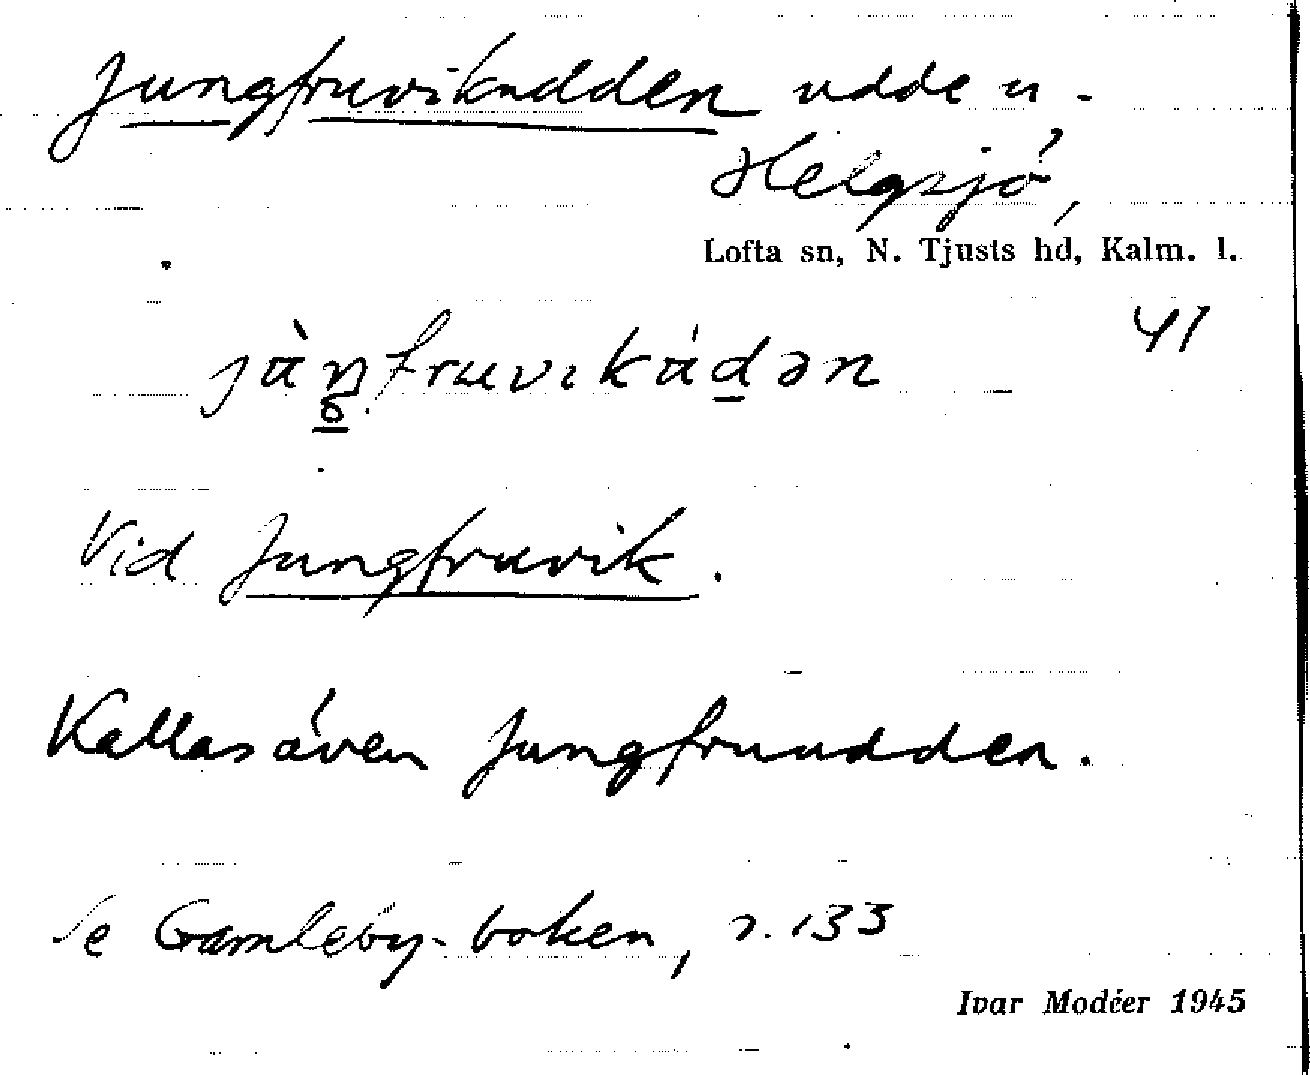 Jungfruvikudden udde u.
Helgsjö,
Lofta sn, N. Tjusts hd, Kalm. l.
41
Vid Jungfruvik.
Kallas även Jungfruudden.
Se Gamleby-boken, s. 133
Ivar Modéer 1945